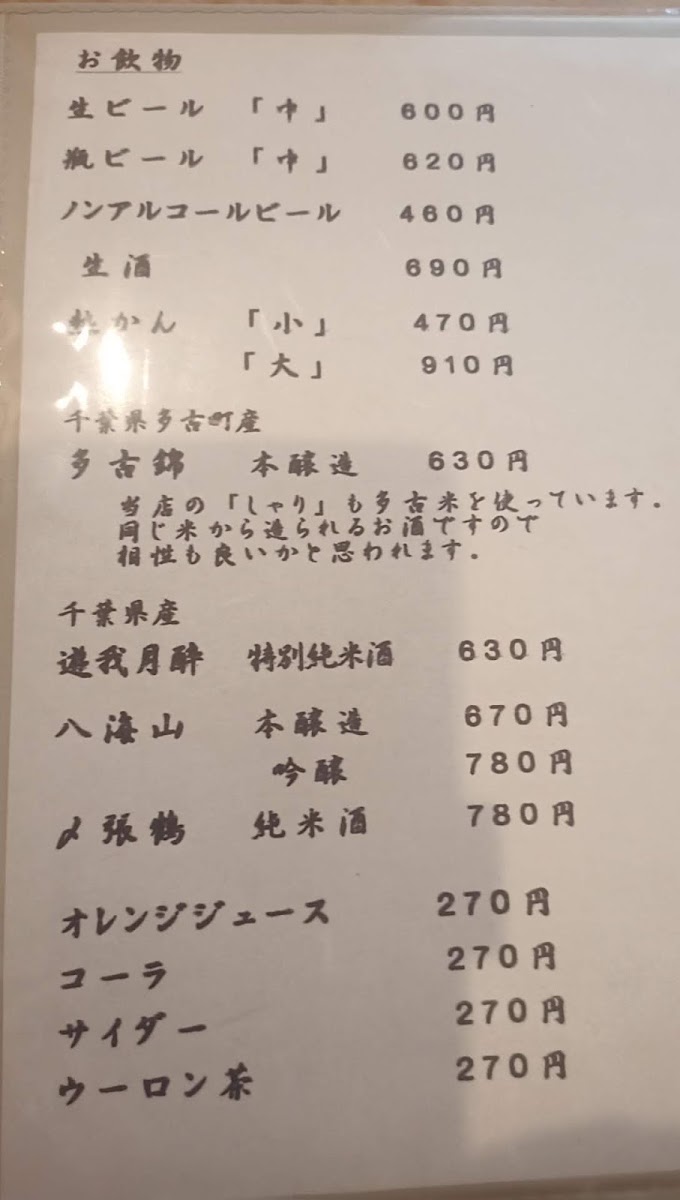 お飲物
生ビール 「中」 600円
瓶ビール 「中」 620円
ノンアルコールビール 460円
生酒 690円
かん 「小」 470円
「大」 910円
千葉県多古町産
多古錦 本醸造 630円
当店の「しゃり」も多古米を使っています.
同じ米から造られるお酒ですので
相性も良いかと思われます.
千葉県産
遊我月酔 特別純米酒 630円
八海山 本醸造 670円
吟醸 780円
〆張鶴 純米酒 780円
オレンジジュース 270円
コーラ 270円
サイダー 270円
ウーロン茶 270円